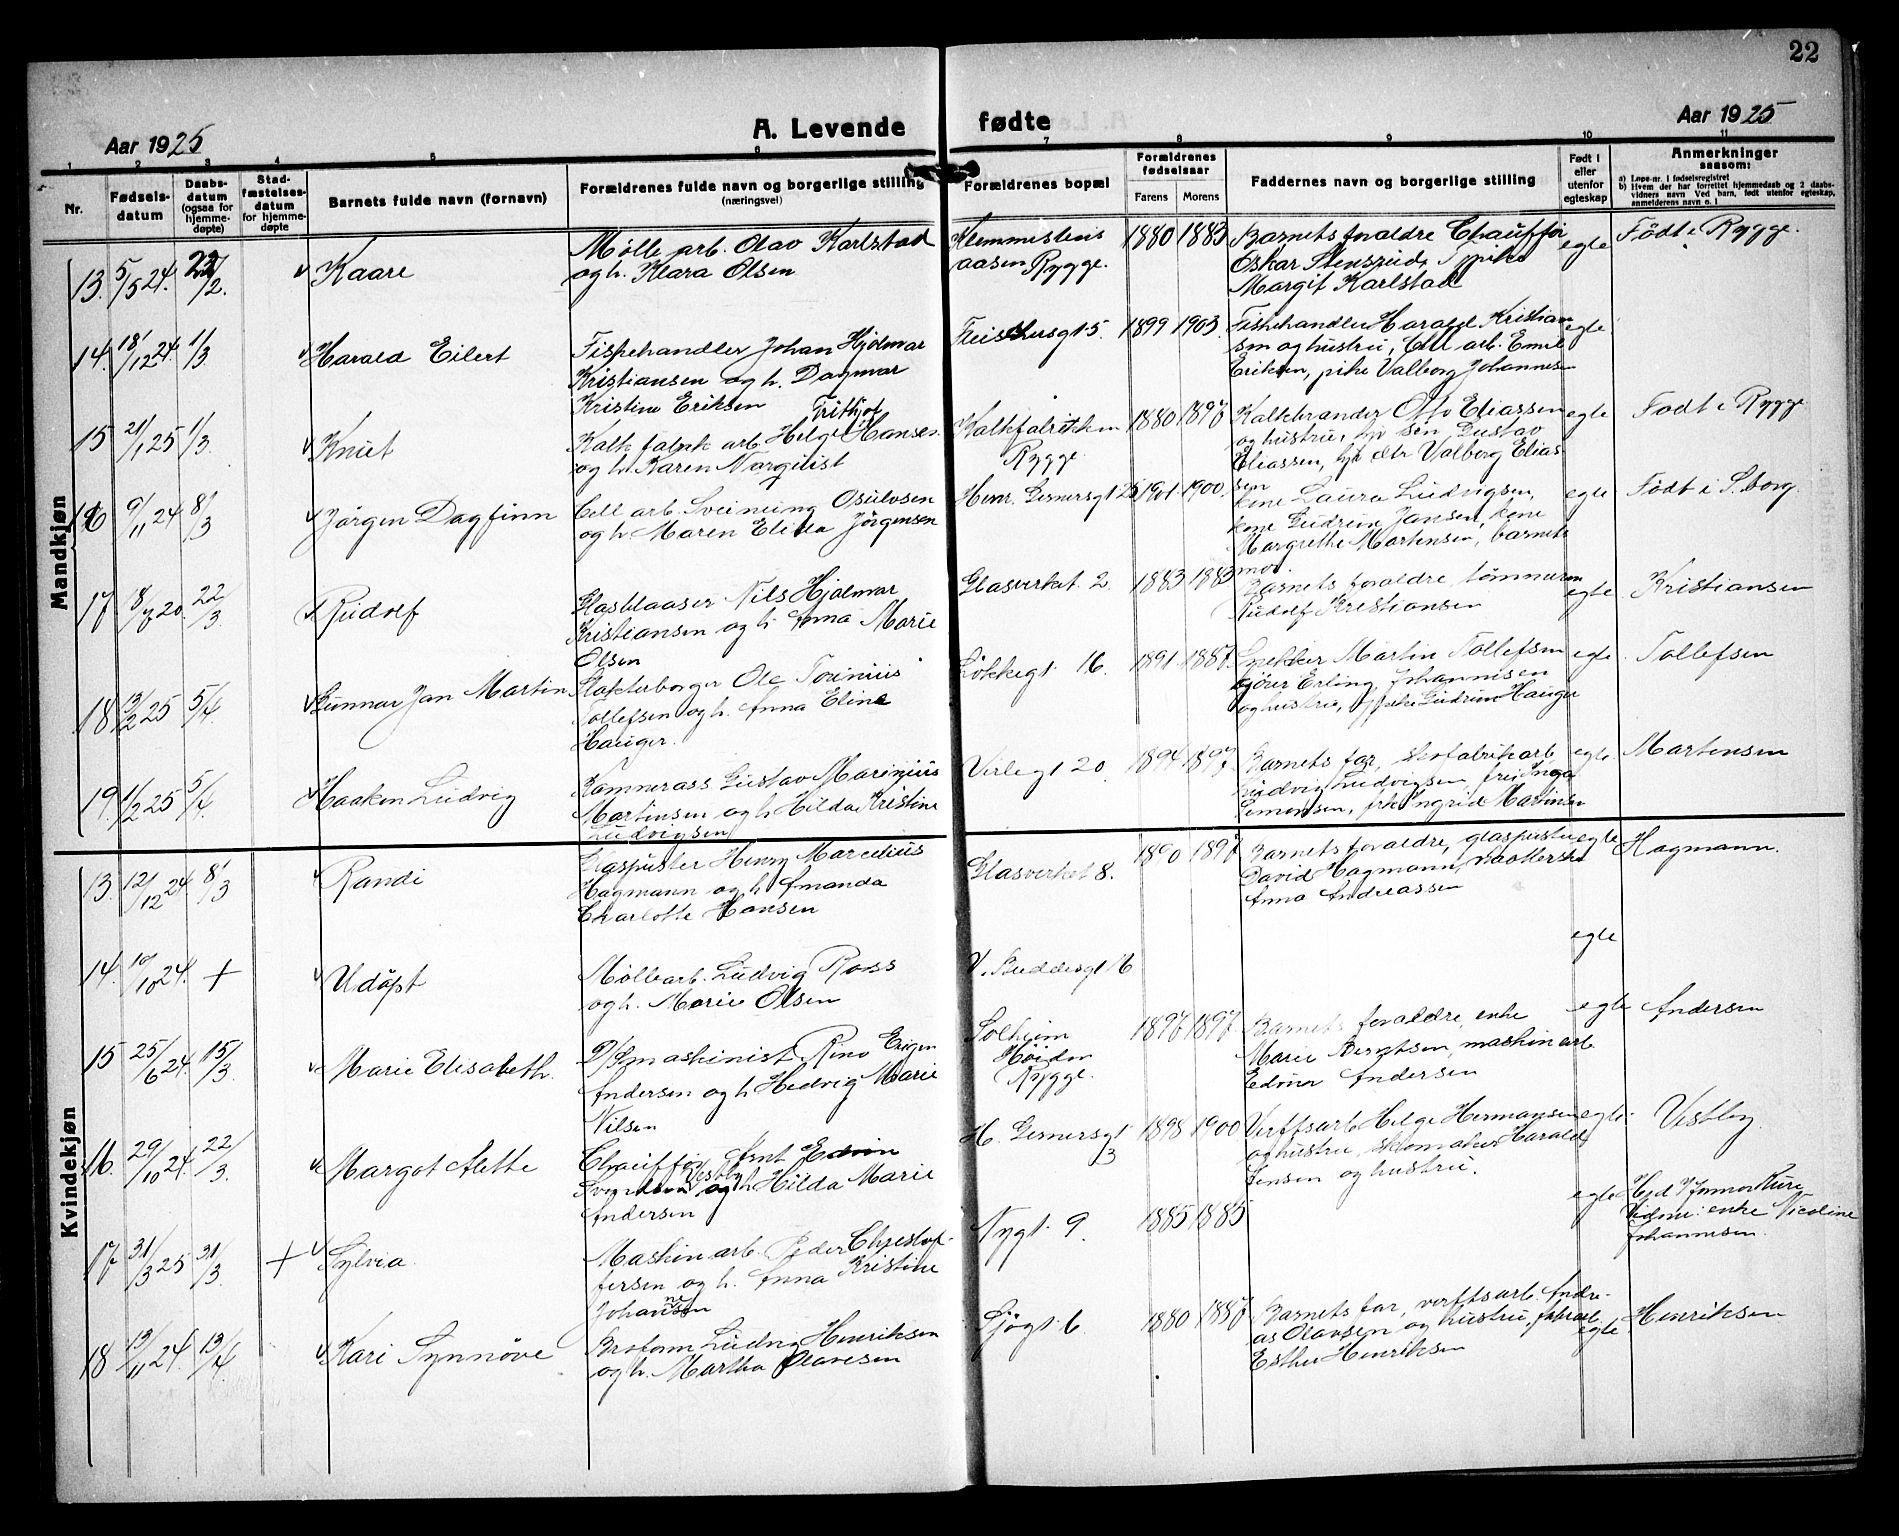 22
Aar 1925
A. Levende fødte
Aar 1925
1 2 3 4 5 6 7 8 9 10 11
Nr.
Fødsels-
datum
Daabs-
datum
(ogsaa for
hjemme-
døpte)
Stad-
fæstelses-
datum
for hjemme-
døpte
Barnets fulde navn (fornavn)
Forældrenes fulde navn og borgerlige stilling
(næringsvei)
Forældrenes bopæl
Forældrenes
fødselsaar
Farens Morens
Faddernes navn og borgerlige stilling
Født i
eller
utenfor
egteskap
Anmerkninger
saasom:
a) Løpe-nr. i fødselsregistret
b) Hvem der har forrettet hjemmedaab og 2 daabs-
vidners navn Ved barn, født utenfor egteskap,
anmelderens navn o. l
Mandkjøn
13. 5/5 24. 22/2.
Kaare
Mølle arb. Olav Karlstad
og h. Klara Olsen
Klemmestens
aasen Rygge.
1880 1883
Barnets foraldre Chauffør
Oskar Stensrud, pike
Margit Karlstad
egte
Født i Rygge.
14. 18/12 24. 1/3
Harald Eilert
Fiskehandler Johan Hjalmar
Kristiansen og h. Dagmar
Kristine Eriksen
1899 1903.
Fiskehandler Harald Kristian
sen og hustru, Cell arb. Emil
Eriksen, pike Valborg Johannes
egte
15 21/1 25 1/3
Knut
Kalkfabrik arb. Helge Fritjof Hansen
og h. Karen Norqvist
Kalkfabrikken
Rygge
1880 1897
Kalkbrander Otto Eliassen
og hustru, hj søn Gustav
Eliassen, hj dtr Valborg Elias
sen
egte
Født i Rygge
16 9/11 24 8/3
Jørgen Dagfinn
Cell arb. Sveinung Osulvsen
og h Maren Elida Jörgensen
Henr. Gernersgt 25
1901. 1900
kone Laura Ludvigsen,
kone Gudrun Jansen, kone
Margrethe Martensen, barnets
mor.
egte
Født i S.borg.
17 8/7 20. 22/3.
Rudolf
Glasblaaser Nils Hjalmar
Kristiansen og h. Anna Marie
Olsen
Glasverket 2
1883 1883
Barnets foraldre, tømmerm
Rudolf Kristiansen
egte
Kristiansen
18 3/2 25 5/4.
Gunnar Jan Martin
Ole Torinius
Tollefsen og h. Anna Eline
Hauger.
Løkkegt 16.
1891. 1887.
Snekker Martin Tollefsen
Erling Johannisen
og hustru, pike Gudrun Hauger
egte
Tollefsen
19. 1/2 25 5/4.
Haakon Ludvig
Kemnerass Gustav Marinius
Martinsen og h Hilda Kristine
Ludvigsen
Verlegt 20
1894 1897
Barnets far, skofabrikarb.
Ludvig Ludvigsen, frk Inga
Simensen, frk Ingrid Martinsen
egte
Martensen
Kvindekjøn
13. 12/12 24 8/3
Randi
Glaspuster Henry Marcelius
Hagmann og h Amanda
Charlotte Hansen
Glasverket 8.
1890 1897
Barnets foraldre, glaspuster
David Hagmann,
Anna Andreassen
egte
Hagmann.
14. 10/10 24. +
Udøpt
Møllearb. Ludvig Ross
og h. Marie Olsen
V. Buddesgt 16
egte
15 25/6 24. 15/3.
Marie Elisabeth.
D/S maskinist Rino Eugen
Andersen og h Hedvig Marie
Nilsen
Solheim
Høiden
Rygge.
1897 1897
Barnets foraldre, enke
Marie Berntsen, maskinarb
Edvin Andersen
egte
Andersen
16. 29/10 24. 22/3.
Margot Alette
Chauffør Arnt Edvin
Svendsen Vestby og h Hilda Marie
Andersen
H. Gernersgt
13
1898 1900
Verftsarb Helge Hermansen
og hustru, skomaker Harald
Jensen og hustru.
egte
Vestby
17 31/3 25 31/3. +
Sylvia
Maskinarb. Peder Christof-
fersen og h. Anna Kristine
Johannesen
Nygt 9
1885 1885
egte
Vidne: enke Nicoline
Johannesen.
18 13/11 24. 13/4
Kari Synnøve
Broform Ludvig Henriksen
og h. Martha Olavesen
Sjøgt 6
1880 1887
Barnets far, verftsarb. Andre-
as Olavsen og hustru, fabrarb
Esther Henriksen
egte
Henriksen